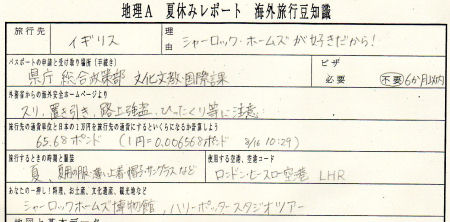 地理A 夏休みレポート 海外旅行豆知識
旅行先 イギリス 理由 シャーロック・ホームズが好きだから!
パスポートの申請と受け取り場所(手続き) ビザ
県庁 総合政策部 文化文教国際課 必要 不要 6か月以内
外務省からの海外安全ホームページより
スリ、置き引き、路上強盗、ひったくり等に注意
旅行先の通貨単位と日本の1万円を旅行先の通貨にするといくらになるか計算しよう
65.68ポンド (1円=0.006568ポンド 3/16 10:29)
旅行するときの時期と服装 使用する空港、空港コード
夏、夏用の服・薄い上着・帽子・サングラスなど ロンドン・ヒースロー空港 LHR
あなたの一押し!料理、お土産、文化遺産、観光地など
シャーロックホームズ博物館、ハリーポッタースタジオツアー